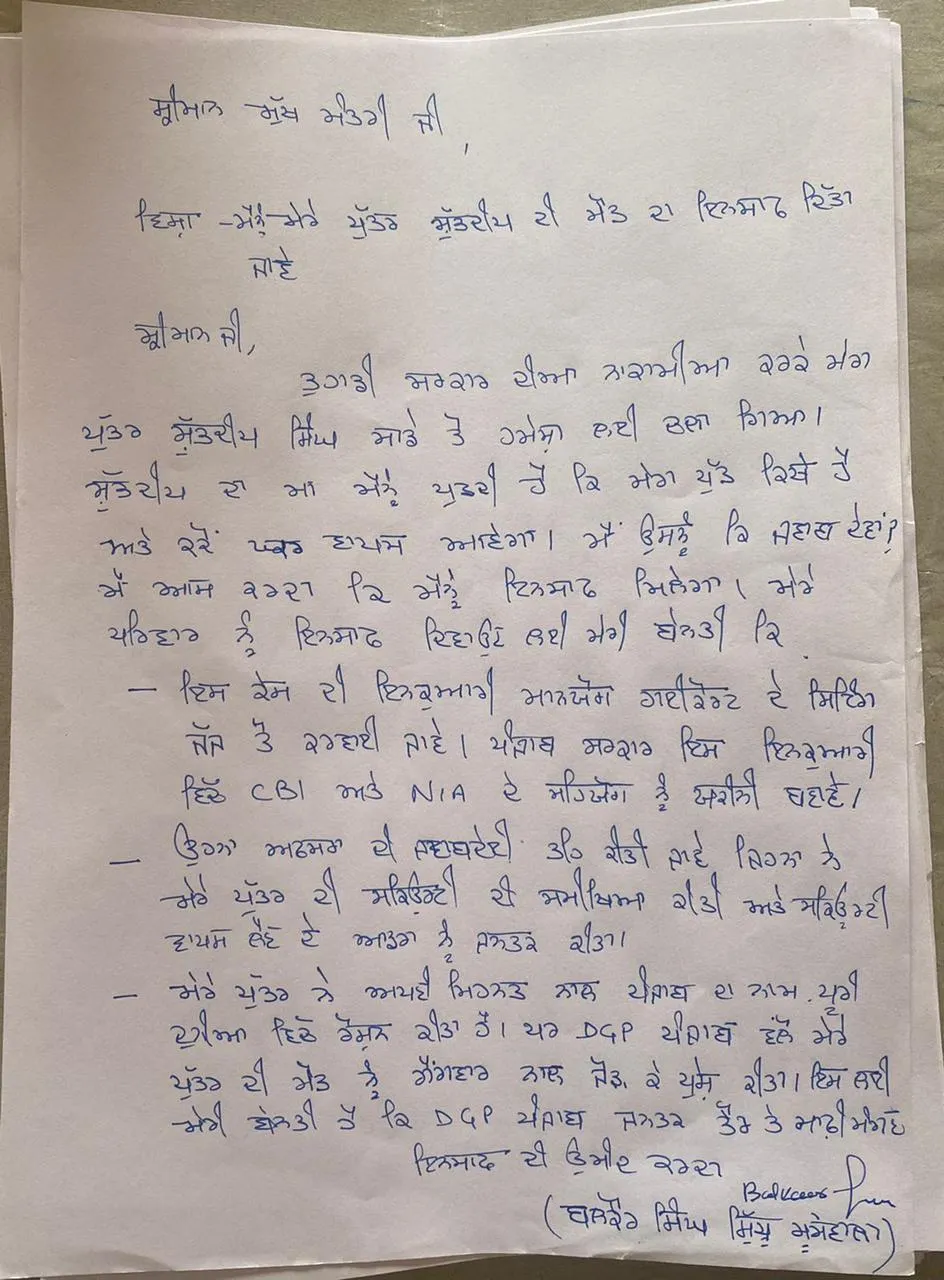 ਸ਼੍ਰੀਮਾਨ ਮੁੱਖ ਮੰਤਰੀ ਜੀ,
ਵਿਸ਼ਾ - ਮੈਨੂੰ ਮੇਰੇ ਪੁੱਤਰ ਸ਼ੁੱਭਦੀਪ ਦੀ ਮੌਤ ਦਾ ਇਨਸਾਫ ਦਿੱਤਾ
ਜਾਵੇ
ਸ਼੍ਰੀਮਾਨ ਜੀ,
ਤੁਹਾਡੀ ਸਰਕਾਰ ਦੀਆ ਨਾਕਾਮੀਆ ਕਰਕੇ ਮੇਰਾ
ਪੁੱਤਰ ਸ਼ੁੱਭਦੀਪ ਸਿੰਘ ਸਾਡੇ ਤੋ ਹਮੇਸ਼ਾ ਲਈ ਚਲਾ ਗਿਆ।
ਸ਼ੁੱਭਦੀਪ ਦਾ ਮਾ ਮੈਨੂੰ ਪੁਛਦੀ ਹੈ ਕਿ ਮੇਰਾ ਪੁੱਤ ਕਿਥੇ ਹੈ
ਅਤੇ ਕਦੋਂ ਵਾਪਸ ਆਵੇਗਾ। ਮੈਂ ਉਸਨੂੰ ਕਿ ਜਵਾਬ ਦੇਵਾਂ?
ਮੈਂ ਆਸ ਕਰਦਾ ਕਿ ਮੈਨੂੰ ਇਨਸਾਫ ਮਿਲੇਗਾ। ਮੇਰੇ
ਪਰਿਵਾਰ ਨੂੰ ਇਨਸਾਫ ਦਿਵਾਉਣ ਲਈ ਮੇਰੀ ਬੇਨਤੀ ਕਿ
- ਇਸ ਕੇਸ ਦੀ ਇਨਕੁਆਰੀ ਮਾਨਯੋਗ ਹਾਈਕੋਰਟ ਦੇ ਸਿਟਿੰਗ
ਜੱਜ ਤੋਂ ਕਰਵਾਈ ਜਾਵੇ। ਪੰਜਾਬ ਸਰਕਾਰ ਇਸ ਇਨਕੁਆਰੀ
ਵਿਚ CBI ਅਤੇ NIA ਦੇ ਸਹਿਯੋਗ ਨੂੰ ਯਕੀਨੀ ਬਣਾਵੇ।
- ਉਹਨਾ ਅਫਸਰਾ ਦੀ ਜਵਾਬਦੇਹੀ ਤਹਿ ਕੀਤੀ ਜਾਵੇ ਜਿਹਨਾ ਨੇ
ਮੇਰੇ ਪੁੱਤਰ ਦੀ ਸਕਿਉਰਟੀ ਦੀ ਸਮੀਖਿਆ ਕੀਤੀ ਅਤੇ ਸਕਿਉਰਟੀ
ਵਾਪਸ ਲੈਣ ਦੇ ਆਡਰਾ ਨੂੰ ਜਨਤਕ ਕੀਤਾ।
- ਮੇਰੇ ਪੁੱਤਰ ਨੇ ਅਪਣੀ ਮਿਹਨਤ ਨਾਲ ਪੰਜਾਬ ਦਾ ਨਾਮ ਪੂਰੀ
ਦੁਨੀਆ ਵਿਚ ਰੌਸ਼ਨ ਕੀਤਾ ਹੈ। ਪਰ DGP ਪੰਜਾਬ ਵੱਲੋ ਮੇਰੇ
ਪੁੱਤਰ ਦੀ ਮੌਤ ਨੂੰ ਗੈਂਗਵਾਰ ਨਾਲ ਜੋੜ ਕੇ ਪੇਸ਼ ਕੀਤਾ। ਇਸ ਲਈ
ਮੇਰੀ ਬੇਨਤੀ ਹੈ ਕਿ DGP ਪੰਜਾਬ ਜਨਤਕ ਤੌਰ ਤੇ ਮਾਫ਼ੀ ਮੰਗਣ
ਇਨਸਾਫ ਦੀ ਉਮੀਦ ਕਰਦਾ
Balkaur
(ਬਲਕੌਰ ਸਿੰਘ ਸਿੱਧੂ ਮੂਸੇਵਾਲਾ)